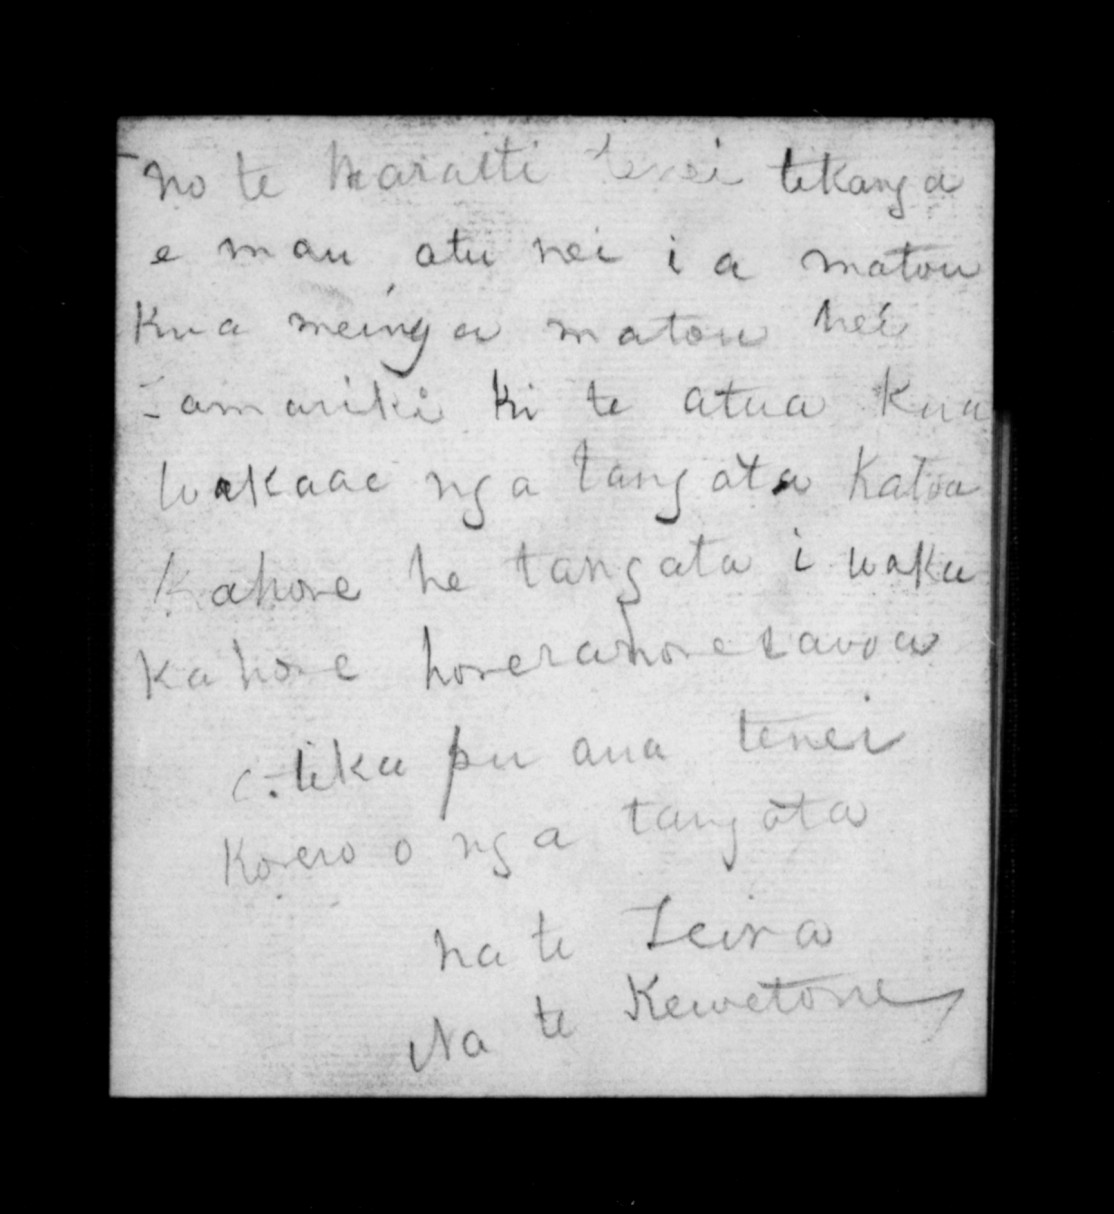 no te karaiti tenei tikanga
e mau atu nei i a matou
kua meinga matou hei
tamariki ki te atua kua
wakaae nga tangata katoa
kahore he tangata i waka
kahore horerahore rawa
e tika pu ana tenei
korero o nga tangata
na te Teira
Na te Kewetone